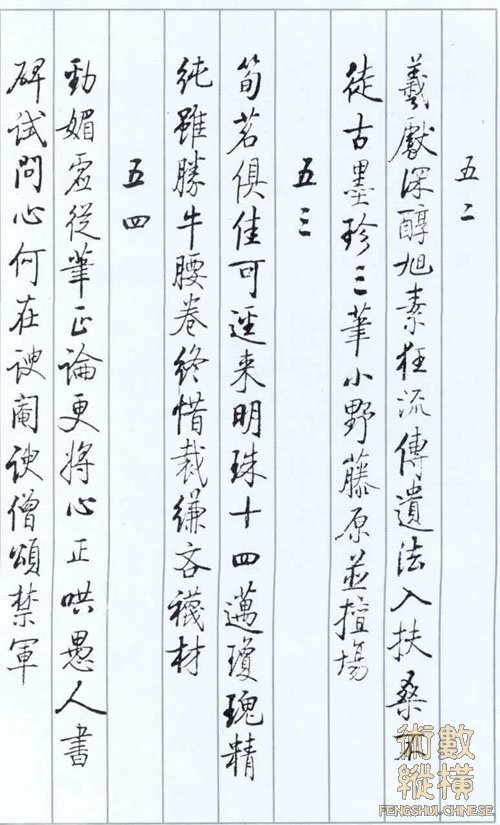 五二
羲獻深醇旭素狂流傳遺法入扶桑不
徒古墨珍三筆小野藤原並擅場
五三
筍茗俱佳可逕来明珠十四邁瓊瑰精
純雖勝牛腰卷終惜裁縑吝襪材
五四
勁媚虛從筆正論更將心正哄愚人書
碑試問心何在諛閹諛僧頌禁軍
術數
縱橫
FENGSHUI-CHINESE